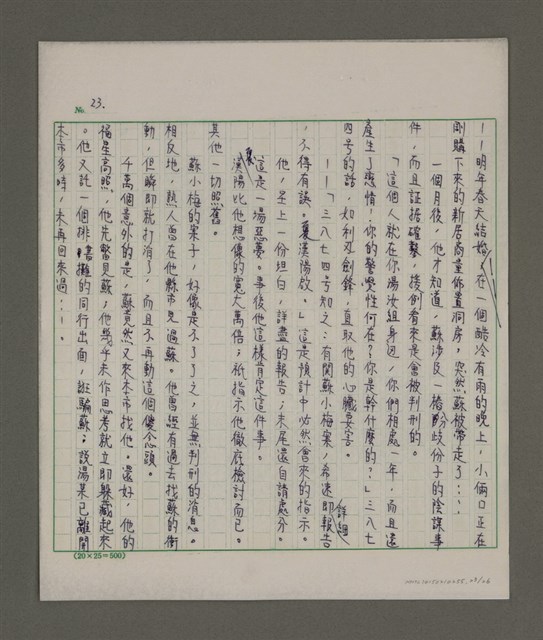 No. 23.
——明年春天結婚。在一個酷冷有雨的晚上，小倆口正在
剛購下來的新居商量佈置洞房，突然蘇被帶走了……
一個月後，他才知道，蘇涉及一樁歧份子的陰謀事
件，而且証据確鑿，後例看來是會被判刑的。
「這個人就在你湯汝組身边，你們相處一年，而且還
產生了感情！你的警覺性何在？你是幹什麼的？」三八七
四号的話，如利刃劍鋒，直取他的心臟要害。
——「三八七四号知之：有関蘇小梅案，希速即詳細報告
，不得有誤。夏漢陽啟。」這是預計中必然會來的指示。
他，呈上一份坦白，詳盡的報告；末尾還自請處分。
這是一場惡夢。事後他這樣肯定這件事。
夏漢陽比他想像的寬大萬倍；祇指示他徹底檢討而已。
其他一切照舊。
蘇小梅的案子，好像是不了了之，並無判刑的消息。
相反地，熟人曾在他縣市見過蘇。他曾經有過去找蘇的衝
動，但瞬即就打消了，而且不再動這個傻念頭。
千萬個意外的是，蘇竟然又來本市找他。還好，他的
福星高照，他先瞥見蘇；他幾乎未作思考就立即躲藏起來
。他又託一個排書攤的同行出面，誑騙蘇；說湯某已離開
本市多時，未再回來過……。
(20×25=500)